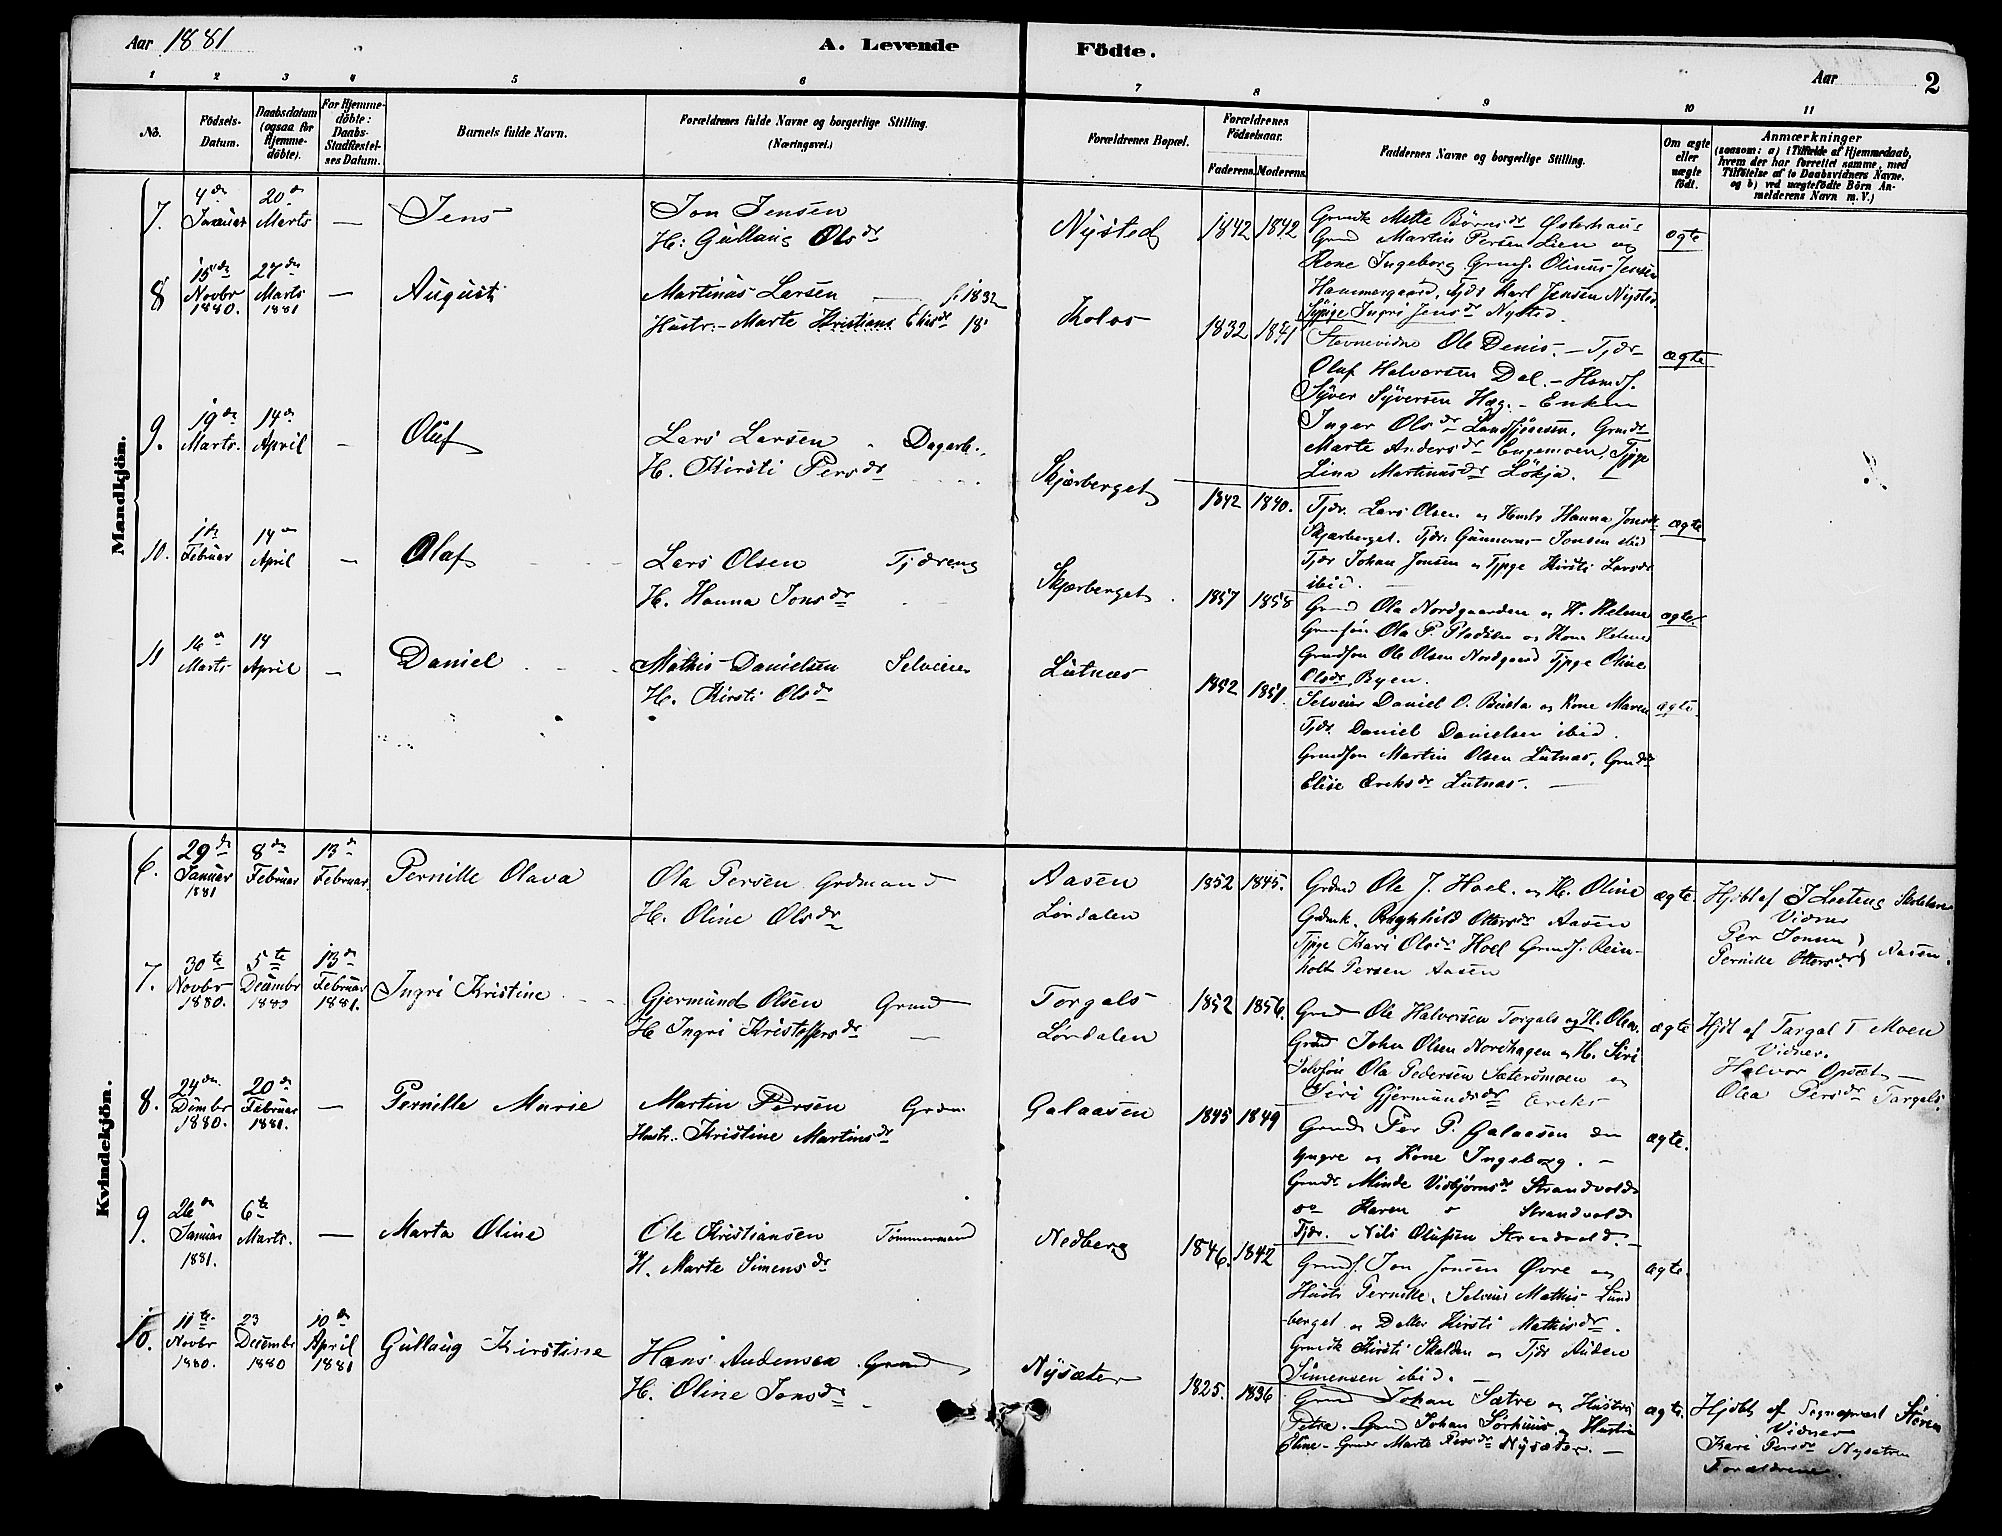 Aar 1881
A. Levende
Födte.
Aar
2
1 2 3 4 5 6 7 8 9 10 11
No.
Födsels-Datum.
Daabsdatum (ogsaa for Hjemme-döbte).
For Hjemme-döbte: Daabs-Stadfæstel-ses Datum.
Barnets fulde Navn.
Forældrenes fulde Navne og borgerlige Stilling. (Næringsvei.)
Forældrenes Bopæl.
Forældrenes Födselsaar.
Faderens. Moderens.
Faddernes Navne og borgerlige Stilling.
Om ægte eller uægte födt.
Anmærkninger
(saasom: a) i Tilfælde af Hjemmedaab,
hvem der har forrettet samme, med
Tilföielse af to Daabsvidners Navne,
og b) ved uægtefödte Börn An-
melderens Navn m. V.)
Mandkjön.
7. 4de Januar 20de Marts — Jens
Jon Jensen
H: Gullaug Olsdr
Nysted 1842 1842
Grmdk Mette Börresdr Østerhaus
Grmd Martin Persen Lien og
Kone Ingeborg Grmdf. Olinus Jensen
Hammergaard, Tjdr Karl Jensen Nysted
Tjpige Ingri Jensdr Nysted.
ægte
8 15de Novbr 1880. 27de Marts 1881 — August
Martinus Larsen — f. 1832
Hustr. Marte Kristians Eliasdr 18
Kolos 1832 1841
Stevnevidne Ole Denis. — Tjdr
Olaf Halvorsen Dal. — Hmdf.
Syver Syversen Hæg. — Enken
Inger Olsdr Landsjöaasen, Grmdr
Marte Andersdr Engemoen, Tjpge
Lina Martinusdr Lökja.
ægte
9. 19de Marts. 14de April — Oluf
Lars Larsen Dagarb.
H. Kirsti Persdr
Skjærberget 1842 1840.
Tjdr. Lars Olsen og Hustr Hanna Jonsdr
Skjærberget. Tjdr. Gunnerus Jonsen ibid
Tjdr Johan Jonsen og Tjpge Kirsti Larsdr
ibid.
ægte
10. 1de Februar 14de April — Olaf
Lars Olsen Tjdreng
H. Hanna Jonsdr
Skjærberget. 1857 1858
Grmd Ola Nordgaarden og H. Helene
Grmdfön Ola P. og Kone Helene
Grmdfon Ole Olsen Nordgaard Tjpge Oline
Olsdr, Byen.
ægte.
11 16de Marts 14 April — Daniel
Mathis Danielsen Selveier
H. Kirsti Olsdr
Lutnæs 1852 1851.
Selveier Daniel O. og Kone Maren
Tjdr Daniel Danielsen ibid.
Grmdfon Martin Olsen Lutnæs, Grmdr
Elise Ereksdr Lutnæs. —
ægte.
Kvindekjön.
6. 29de Januar 1881 8de Februar 13de Februar. Pernille Olava
Ola Persen Grdmand
H. Oline Olsdr
Aasen Lördalen 1852 1845.
Grdmd Ole J. Hoel. og H. Oline
Grdmk. Ragnhild Ottersdr Aasen
Tjpge Kari Olsdr Hoel Grmdf. Rein-
holt Persen Aasen
ægte.
Hjdbt af J Skolelærer
Vidner
Per Jonsen
Pernille Ottersdr Aasen.
7. 30te Novbr 1880. 5te Decembr 1880 13de Februar 1881. Ingri Kristine
Gjermund Olsen Grmd
H. Ingri Kristoffersdr —
Torgals Lördalen 1852 1856.
Grmd Ole Halvorsen Torgals og H. Olea.
Grmd John Olsen Nordhagen og H. Siri
Selvfön Ola Pedersen Sæterömoen og
Siri Gjermundsdr Ereks
ægte
Hjdt af Targal T Moen
Vidner.
Halvor Opsæt —
Olea Persdr Targals.
8. 24de Dcmbr 1880. 20de Februar 1881. — Pernille Marie
Martin Persen Grdm
Hustr. Kristine Martinsdr
Galaasen 1845 1849
Grmd Per P. Galaasen den
yngre og Kone Ingeborg. —
Grmdr Minde Vidbjørnsdr Strandvold
og Karen Strandvold
Tjdr. Nils Olufsen Strandvold. —
ægte.
9. 26de Januar 1881. 6te Marts. — Marta Oline
Ole Kristiansen Tömmermand
H. Marte Simensdr
Nedberg 1846. 1842
Grmdf. Jon Jonsen Øvre og
Hustr Pernille, Selveier Mathis Lund
-berget og Datter Kirsti Mathisdr.
Grmdk Kirsti Skalden og Tjdr Anders
Simensen ibid. —
ægte.
10. 11te Novbr 1880. 23 Decembr 1880 10de April 1881 Gullaug Kirstine
Hans Andersen Grmd
H. Oline Jonsdr
Nysæter 1825. 1836
Grmd Johan Sætre og Hustru
Petra. Grmd Johan Sørhuus og Hustru
Eline — Grmdr Marte Persdr Nysæter. —
ægte.
Hjdbt af Sognepræst Stören
Vidner
Kari Persdr Nysæteren
Forældrene.